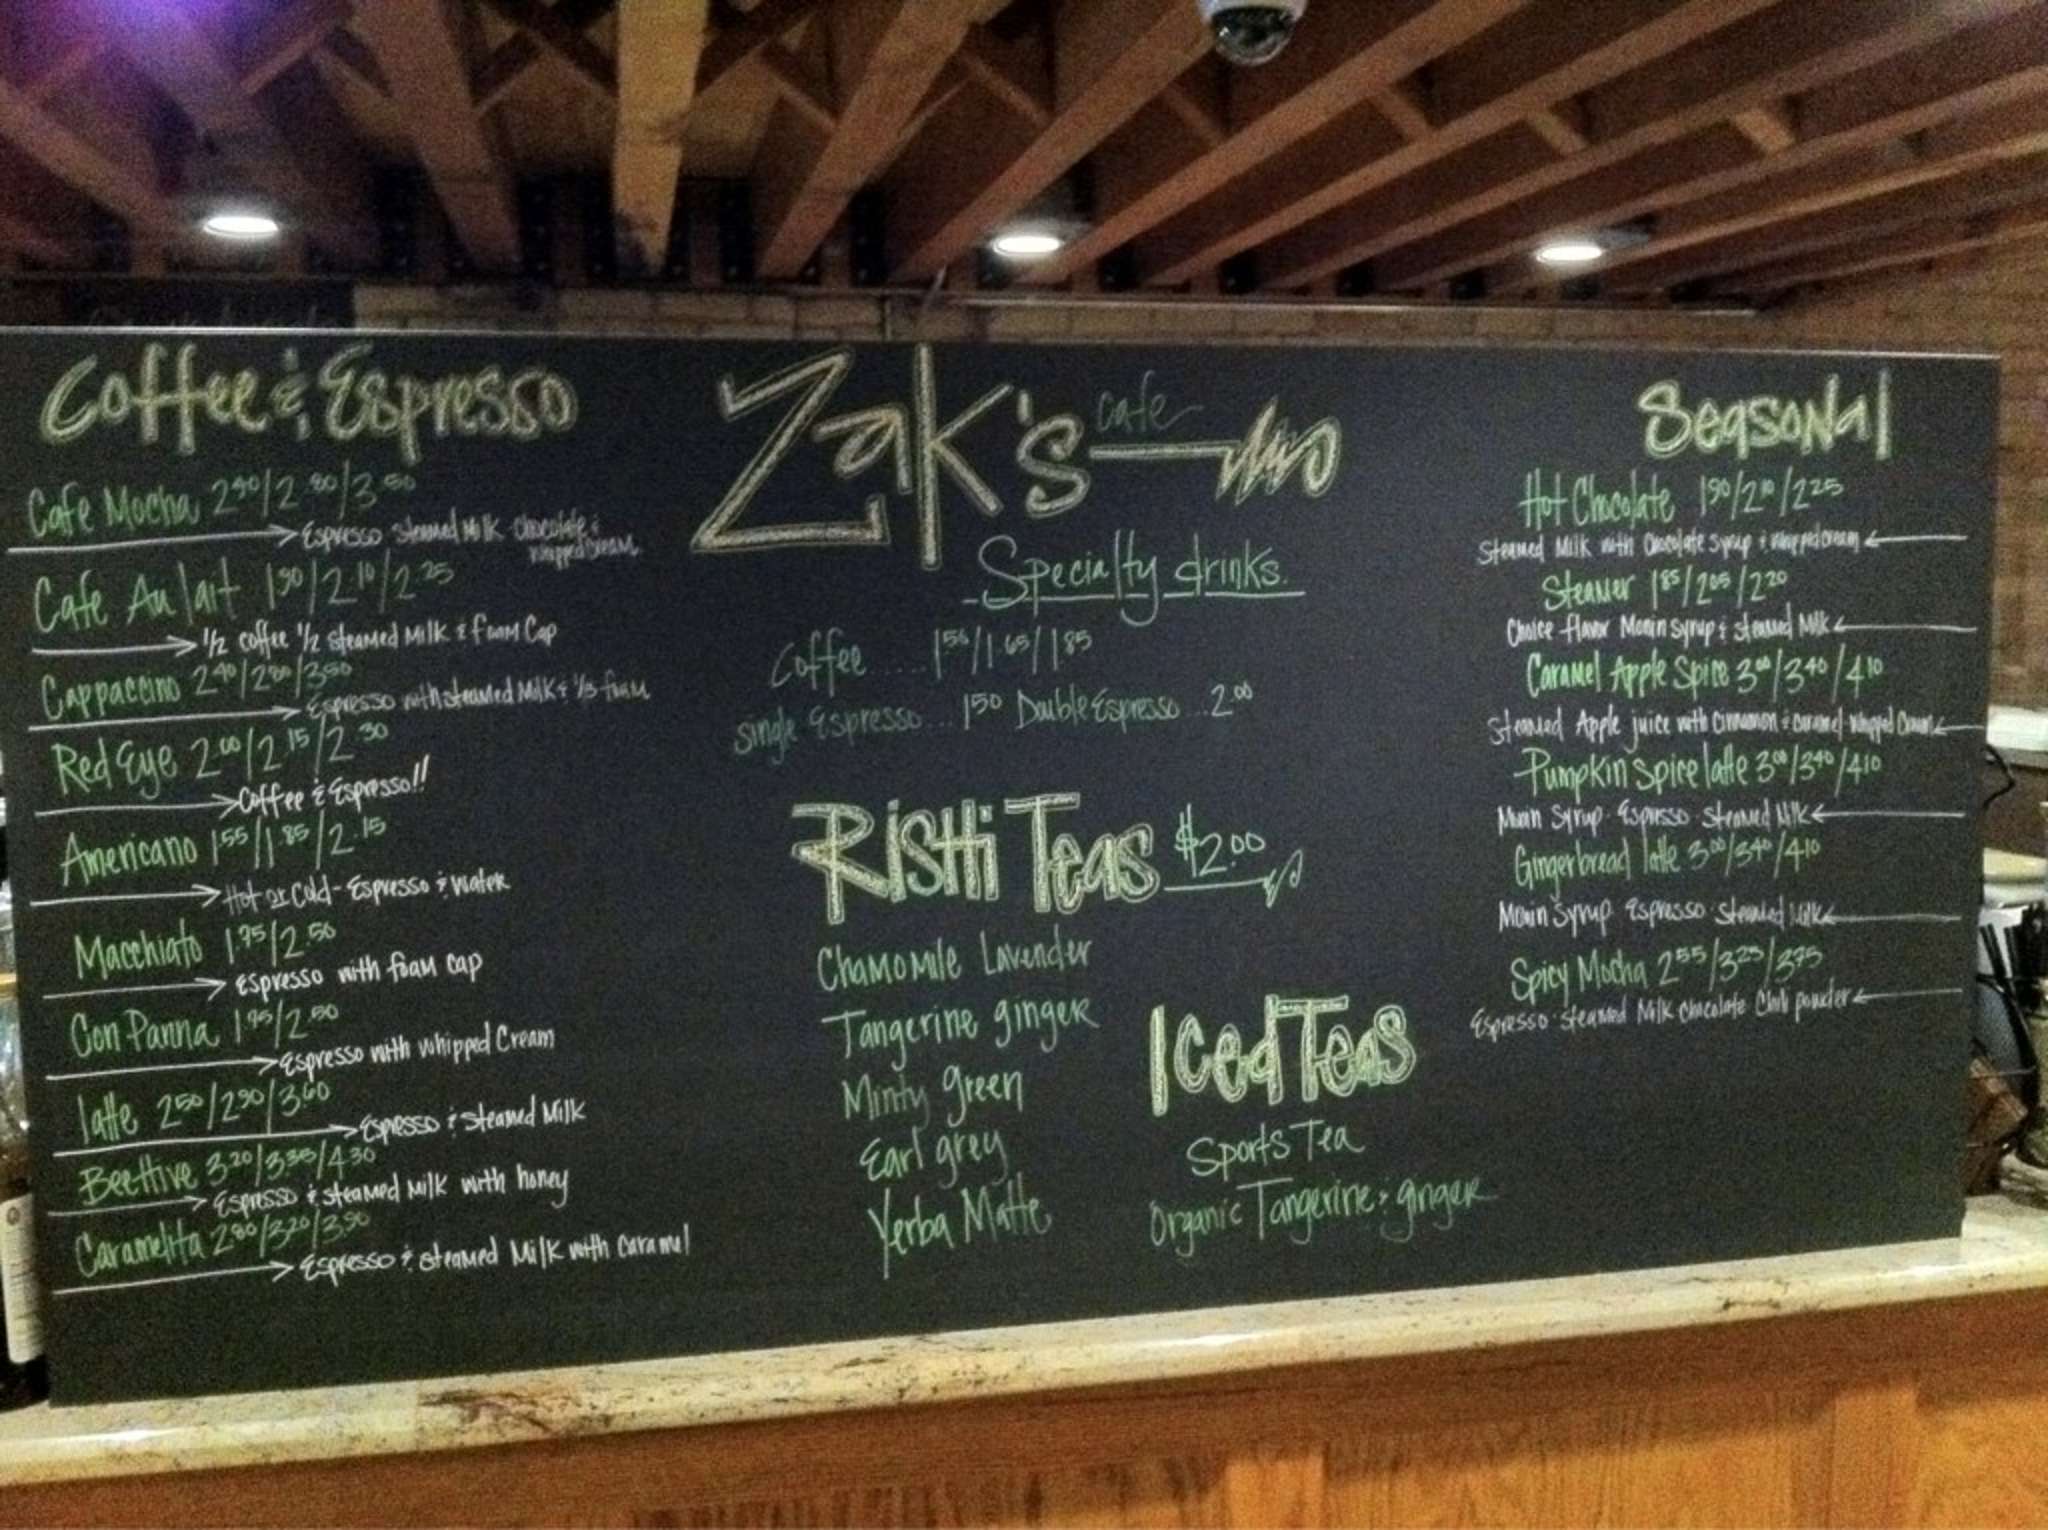 Coffee & Espresso
Cafe Mocha 2.40/2.80/3.50
Espresso steamed Milk chocolate &
whipped cream
Cafe Au lait 1.90/2.10/2.25
1/2 coffee 1/2 steamed Milk & foam Cap
Cappaccino 2.40/2.80/3.50
Espresso with steamed Milk & 1/3 foam
Red Eye 2.00/2.15/2.30
Coffee & Espresso!!
Americano 1.55/1.85/2.15
Hot or Cold - Espresso & water
Macchiato 1.75/2.50
Espresso with foam cap
Con Panna 1.95/2.50
Espresso with whipped Cream
latte 2.50/2.90/3.60
Espresso & steamed Milk
BeeHive 3.20/3.35/4.30
Espresso & steamed Milk with honey
Caramelita 2.80/3.20/3.90
Espresso & steamed Milk with Caramel
Zak's cafe
Specialty drinks.
Coffee ..... /1.65/1.85
Single Espresso ... 1.50 Double Espresso ... 2.00
RisHi Teas $2.00
Chamomile Lavender
Tangerine ginger
Minty green
Earl grey
Yerba Matte
Iced Teas
Sports Tea
Organic Tangerine & ginger
Seasonal
Hot Chocolate 1.90/2.10/2.25
Steamed Milk with Chocolate syrup & whipped cream
Steamer 1.85/2.05/2.20
Choice flavor Monin syrup & steamed Milk
Caramel Apple Spice 3.00/3.40/4.10
Steamed Apple juice with cinnamon & caramel whipped Cream
Pumpkin Spice latte 3.00/3.40/4.10
Monin Syrup Espresso Steamed Milk
Gingerbread latte 3.00/3.40/4.10
Monin Syrup Espresso Steamed Milk
Spicy Mocha 2.55/3.25/3.75
Espresso steamed Milk chocolate Chili powder